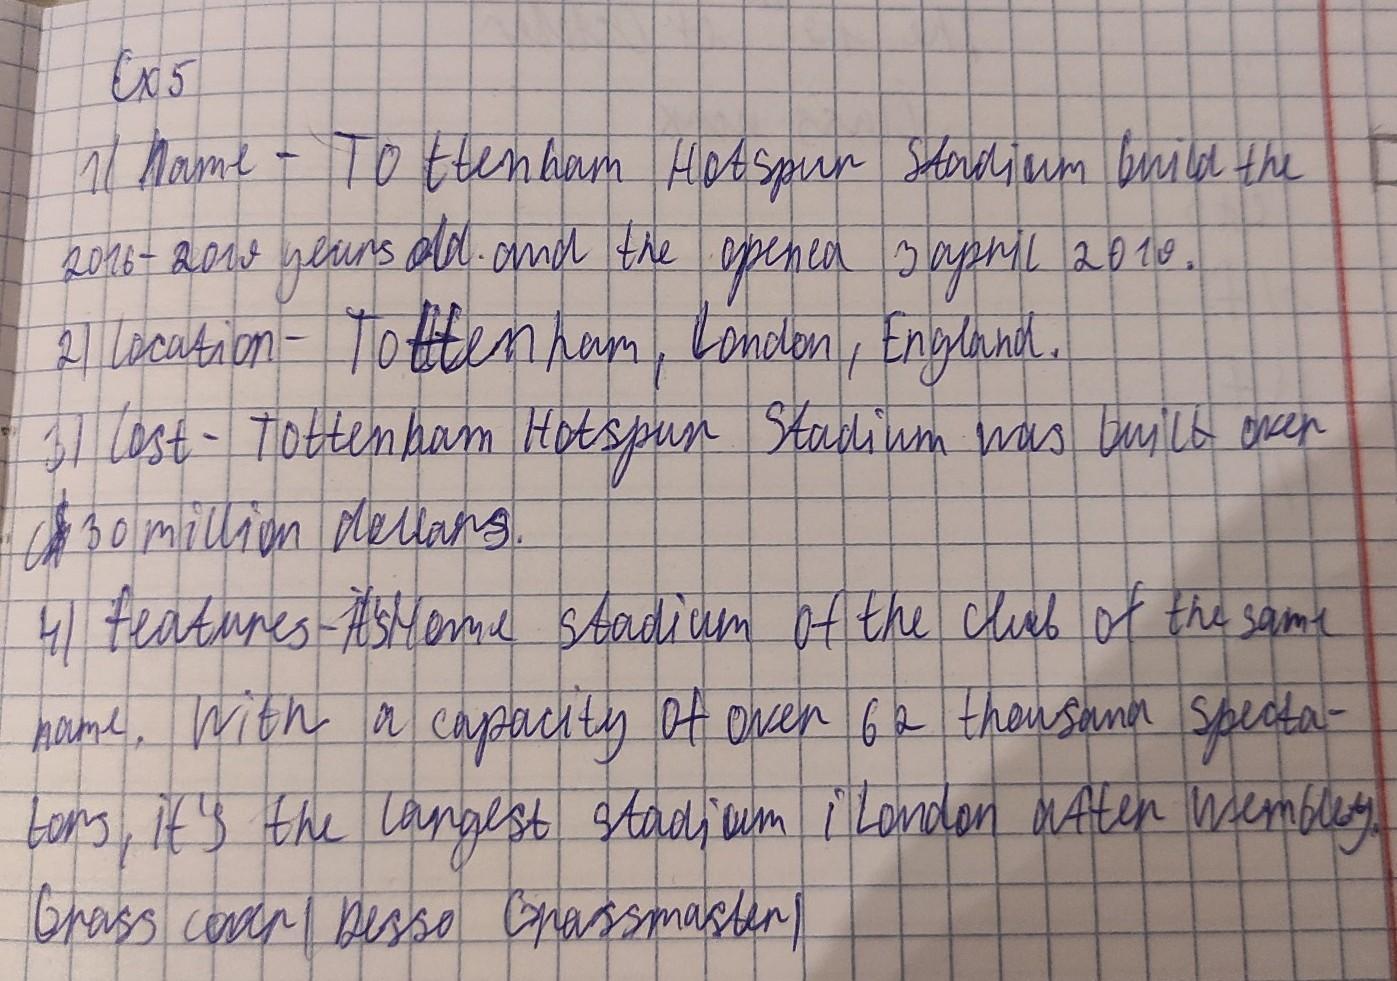 Ex 5
1) Name - Tottenham Hotspur Stadium build the
2016-2019 years old. and the opened 3 april 2019.
2) Location - Tottenham, London, England.
3) Cost - Tottenham Hotspur Stadium was built over
$30 million dellars.
4) Features - It's Home stadium of the club of the same
name. With a capacity of over 62 thousand specta-
tors, it's the largest stadium i London after Wembley.
Grass cover | Desso Grassmaster |